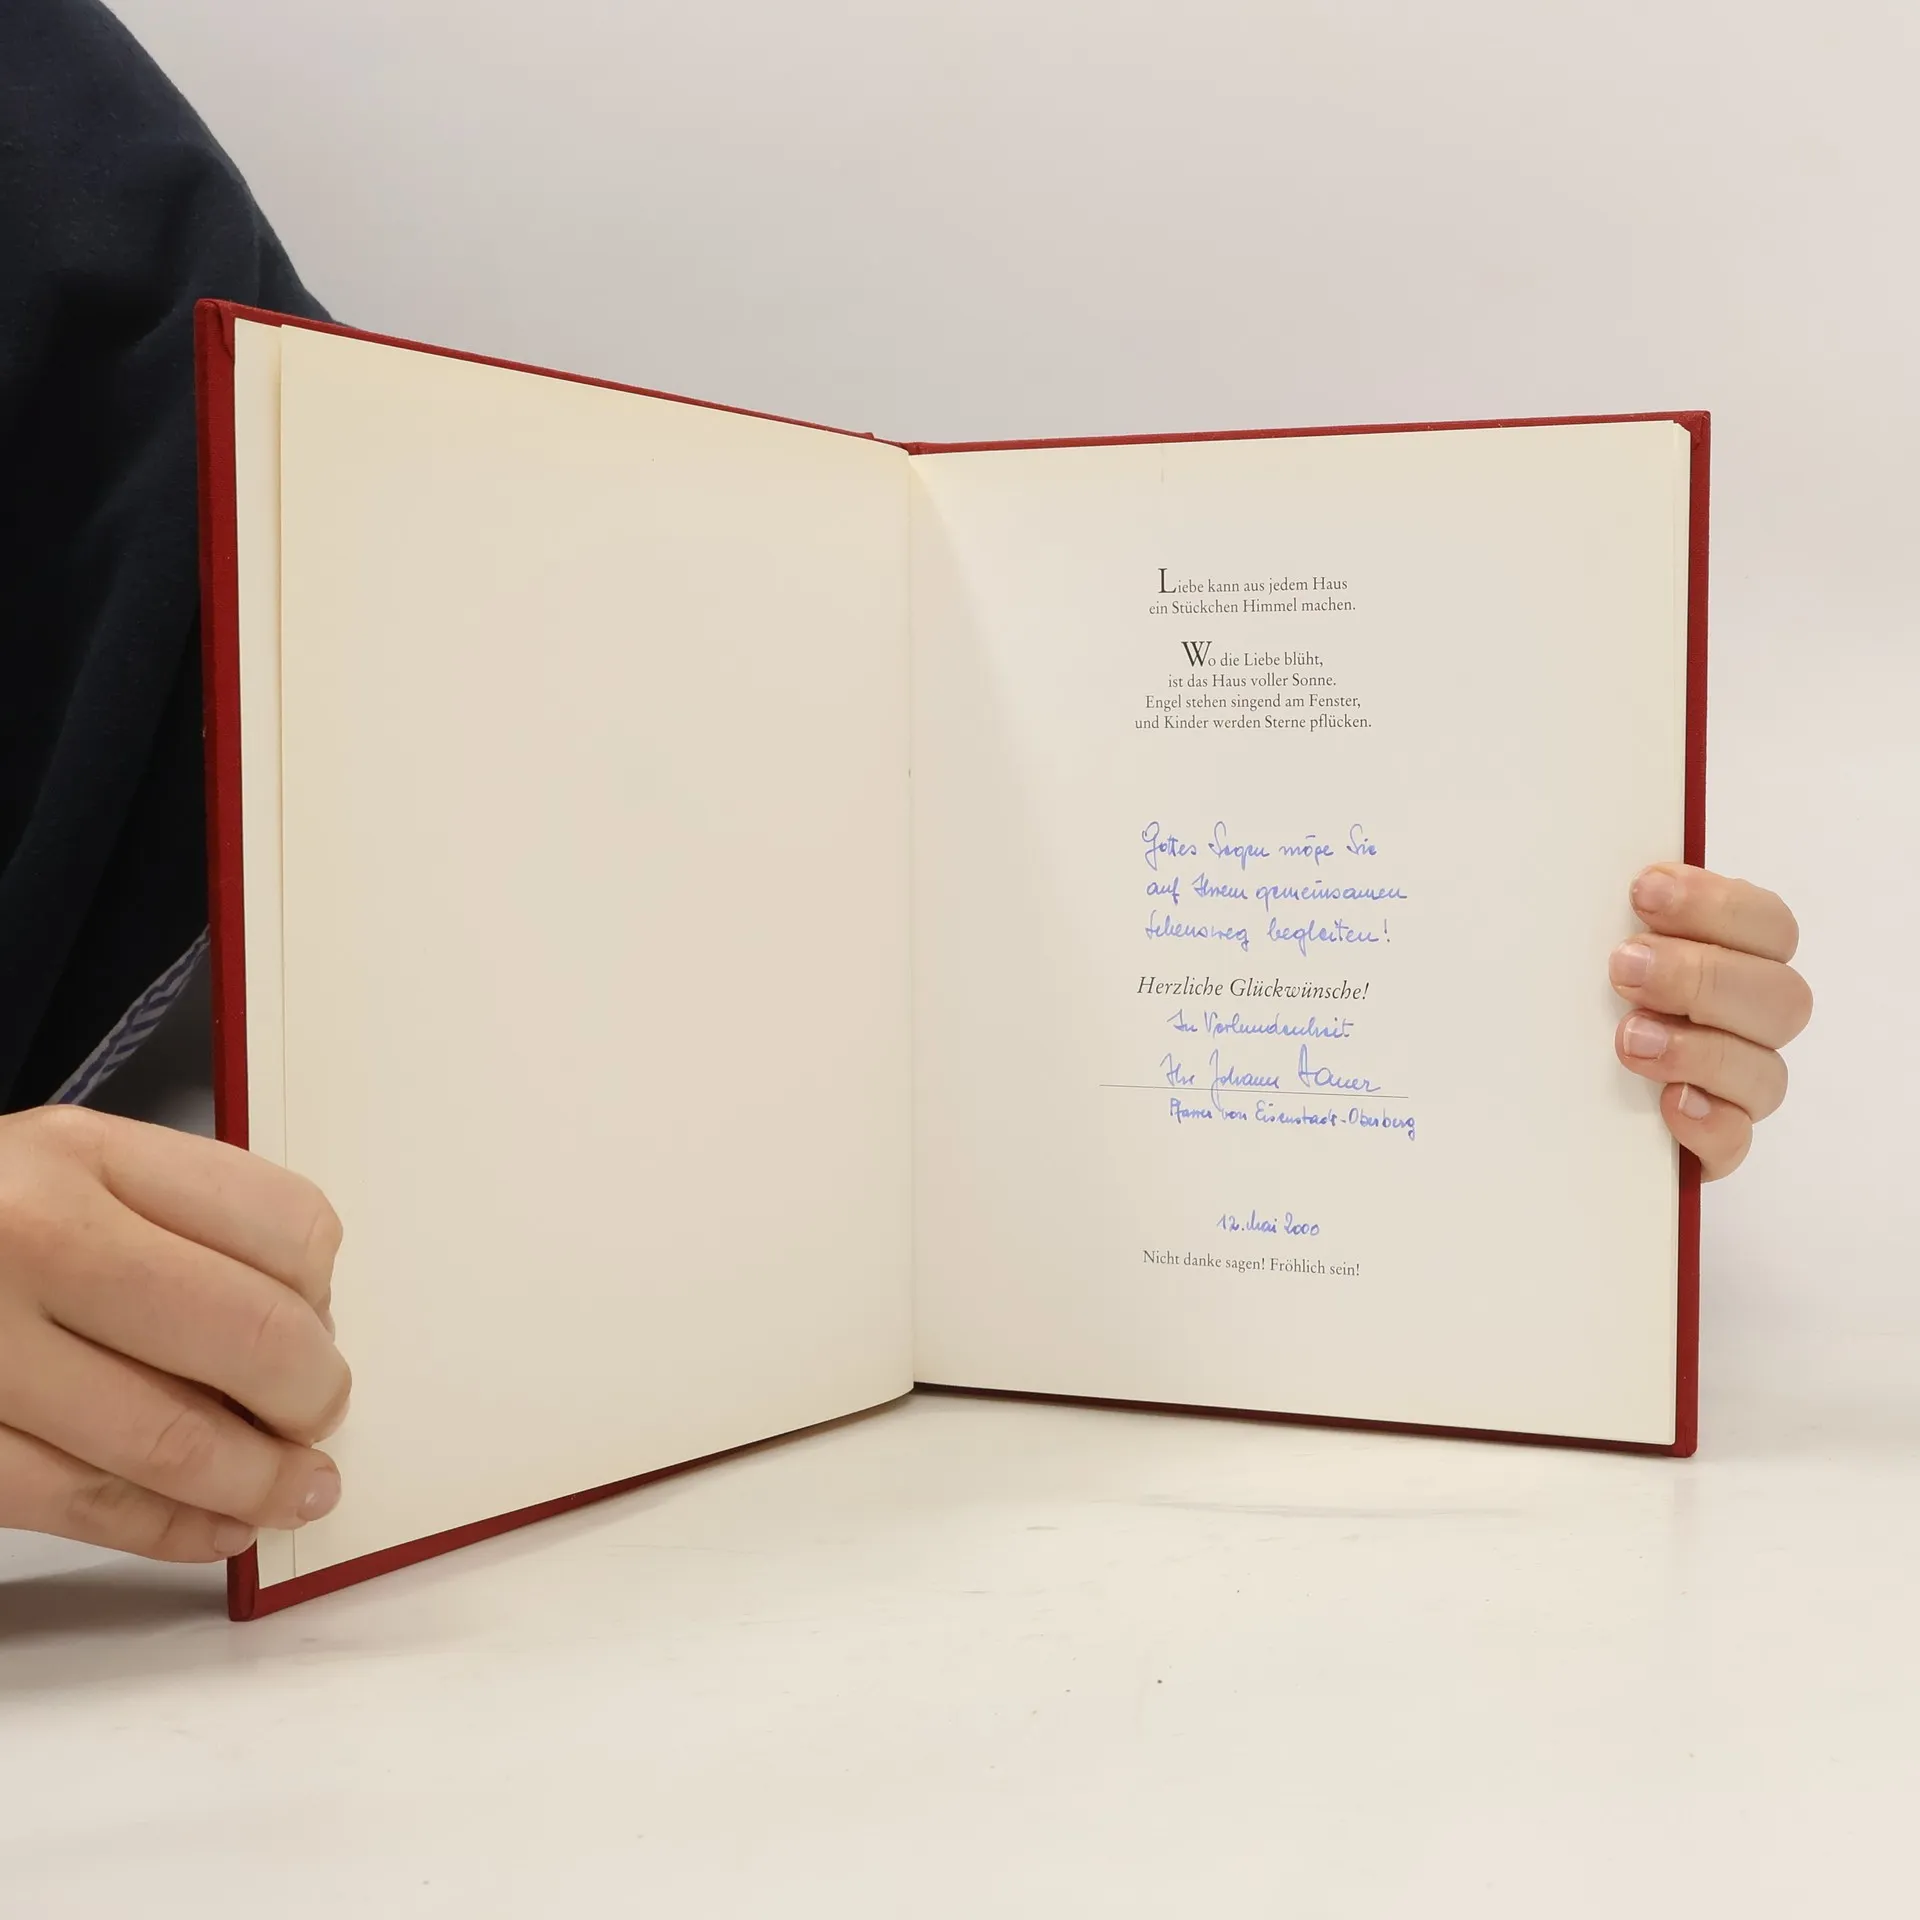 Liebe kann aus jedem Haus
ein Stückchen Himmel machen.
Wo die Liebe blüht,
ist das Haus voller Sonne.
Engel stehen singend am Fenster,
und Kinder werden Sterne pflücken.
Gottes Segen möge Sie
auf Ihrem gemeinsamen
Lebensweg begleiten!
Herzliche Glückwünsche!
In Verbundenheit
Ihr Johann
Pfarrer von Eisenstadt-Oberberg
12. Mai 2000
Nicht danke sagen! Fröhlich sein!